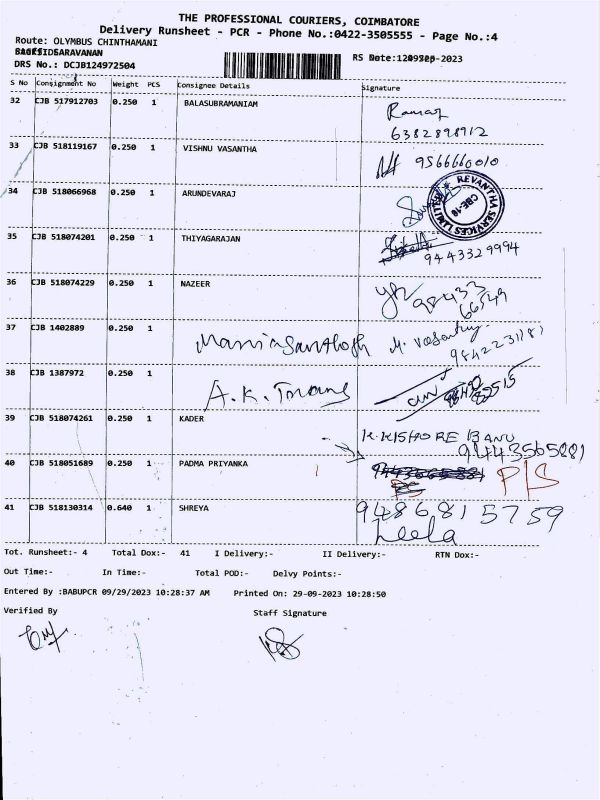 THE PROFESSIONAL COURIERS, COIMBATORE
Delivery Runsheet - PCR - Phone No.:0422-3505555 - Page No.:4
Route: OLYMBUS CHINTHAMANI
SARAVANAN
DRS No.: DCJB124972504
RS Date: -2023
S No Consignment No Weight PCS Consignee Details Signature
32 CJB 517912703 0.250 1 BALASUBRAMANIAM
6382898912
33 CJB 518119167 0.250 1 VISHNU VASANTHA 9566660010
34 CJB 518066968 0.250 1 ARUNDEVARAJ
REVANTHA SERVICES LIMITED
CBE-18
35 CJB 518074201 0.250 1 THIYAGARAJAN
9443329994
36 CJB 518074229 0.250 1 NAZEER
98433
66549
37 CJB 1402889 0.250 1
9842231181
38 CJB 1387972 0.250 1 A.K.
39 CJB 518074261 0.250 1 KADER
K.KISHORE BANU
9443565881
40 CJB 518051689 0.250 1 PADMA PRIYANKA
41 CJB 518130314 0.640 1 SHREYA 9486815759
Leela
Tot. Runsheet:- 4 Total Dox:- 41 I Delivery:- II Delivery:- RTN Dox:-
Out Time:- In Time:- Total POD:- Delvy Points:-
Entered By :BABUPCR 09/29/2023 10:28:37 AM Printed On: 29-09-2023 10:28:50
Verified By Staff Signature